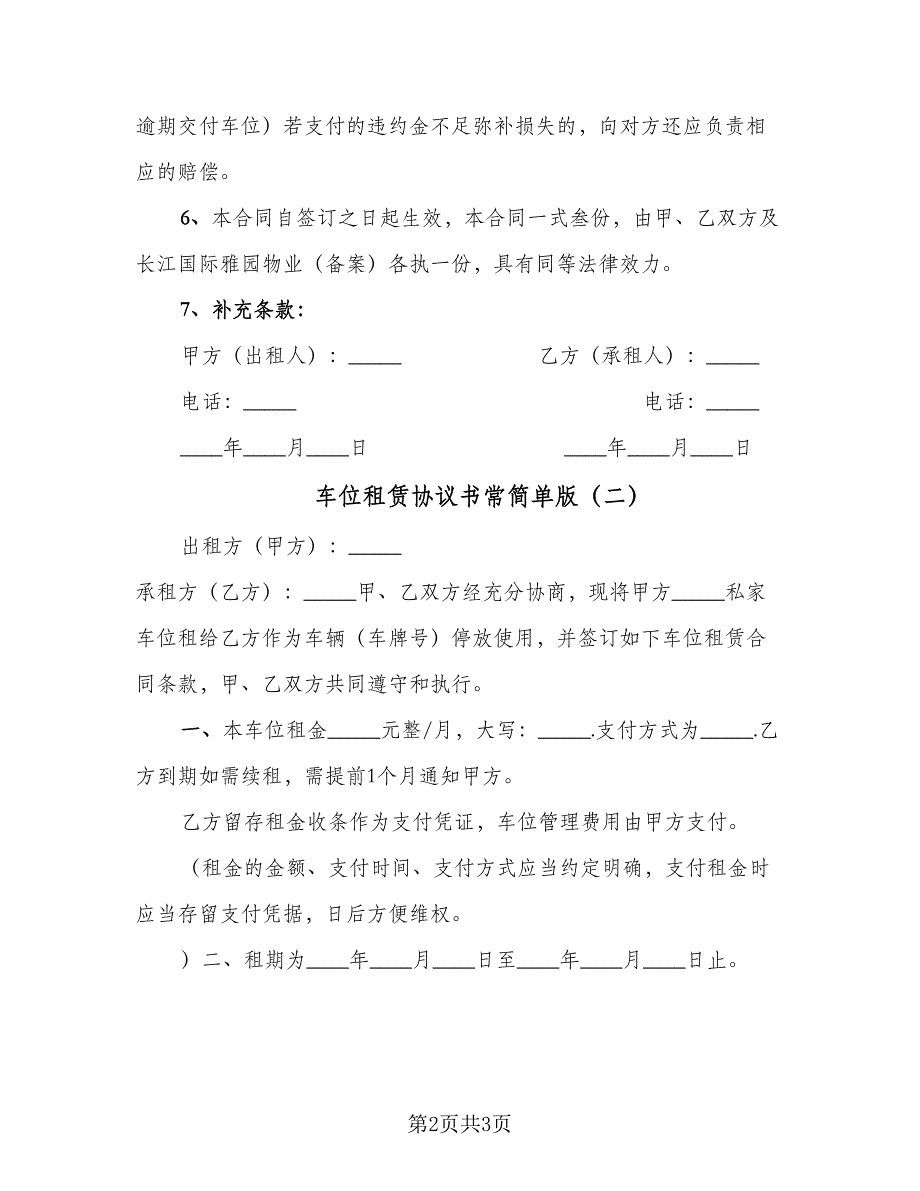 逾期交付车位）若支付的违约金不足弥补损失的，向对方还应负责相
应的赔偿。
6、本合同自签订之日起生效，本合同一式叁份，由甲、乙双方及
长江国际雅园物业（备案）各执一份，具有同等法律效力。
7、补充条款：
甲方（出租人）：_____ 乙方（承租人）：_____
电话：_____ 电话：_____
____年____月____日 ____年____月____日
车位租赁协议书常简单版（二）
出租方（甲方）：_____
承租方（乙方）：_____甲、乙双方经充分协商，现将甲方_____私家
车位租给乙方作为车辆（车牌号）停放使用，并签订如下车位租赁合
同条款，甲、乙双方共同遵守和执行。
一、本车位租金_____元整/月，大写：_____.支付方式为_____.乙
方到期如需续租，需提前1个月通知甲方。
乙方留存租金收条作为支付凭证，车位管理费用由甲方支付。
（租金的金额、支付时间、支付方式应当约定明确，支付租金时
应当存留支付凭据，日后方便维权。
）二、租期为____年____月____日至____年____月____日止。
第2页共3页